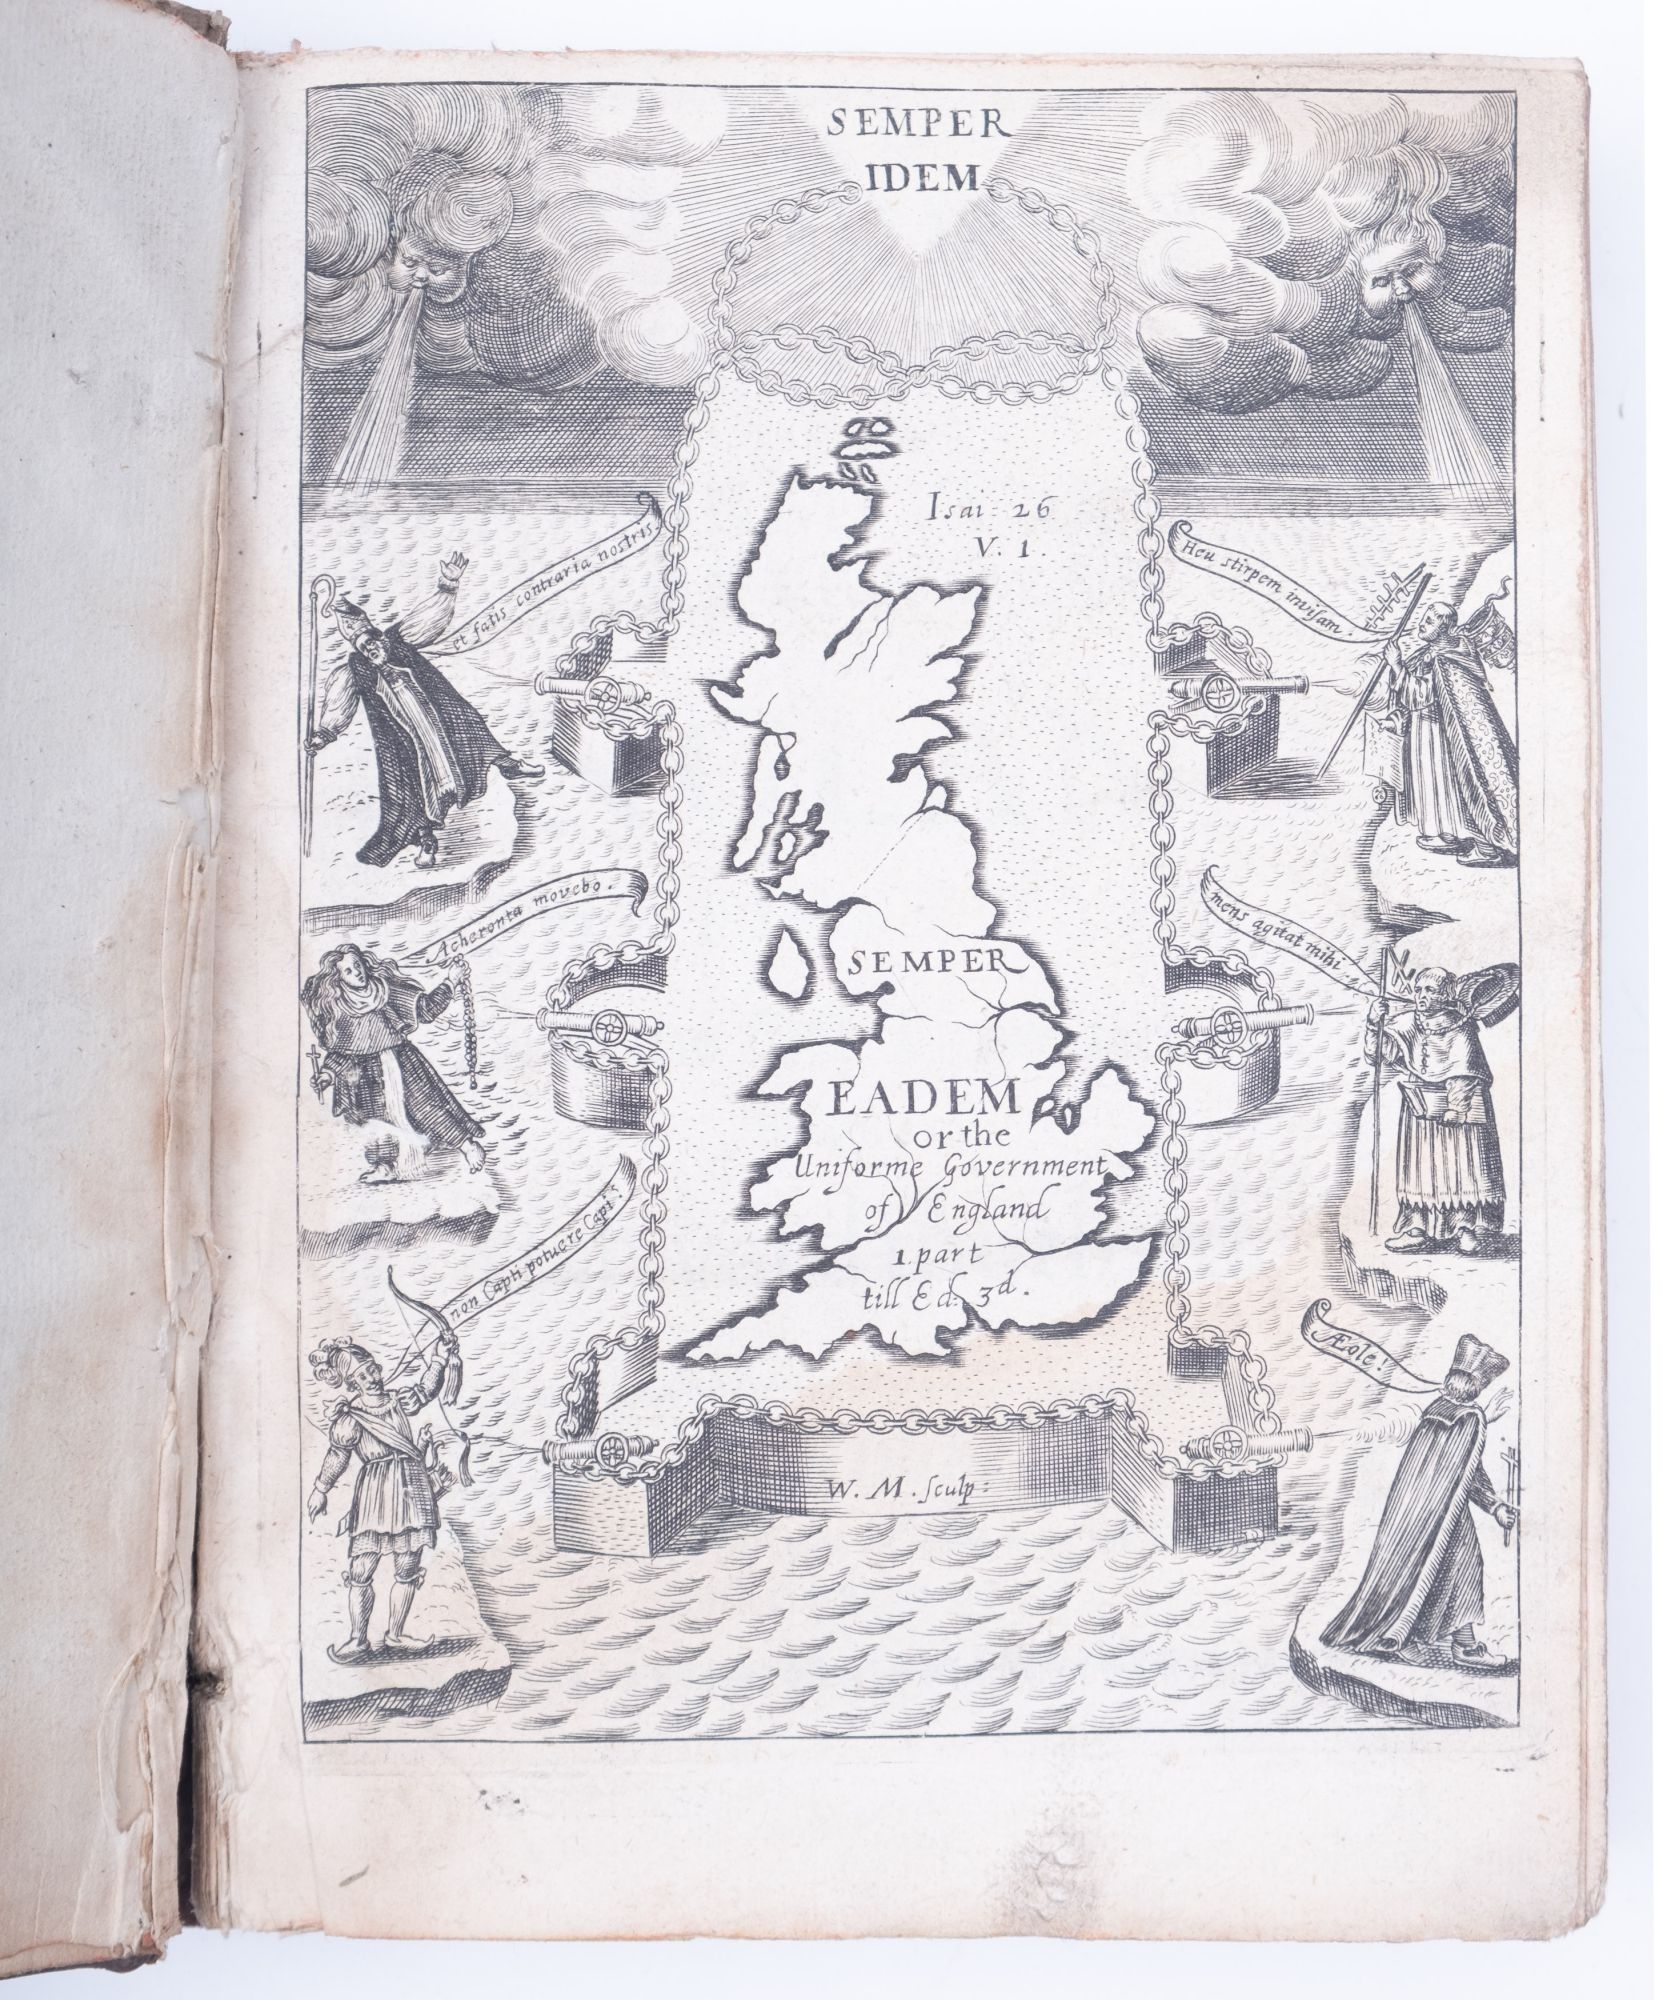 SEMPER
IDEM
Isai: 26
V. 1
et fatis contraria nostris.
Heu stirpem invisam.
Acheronta movebo.
mens agitat mihi
non Capti potuere Capi?
Æole!
SEMPER
EADEM
or the
Uniforme Government
of England
1. part
till Ed: 3d.
W. M. sculp: